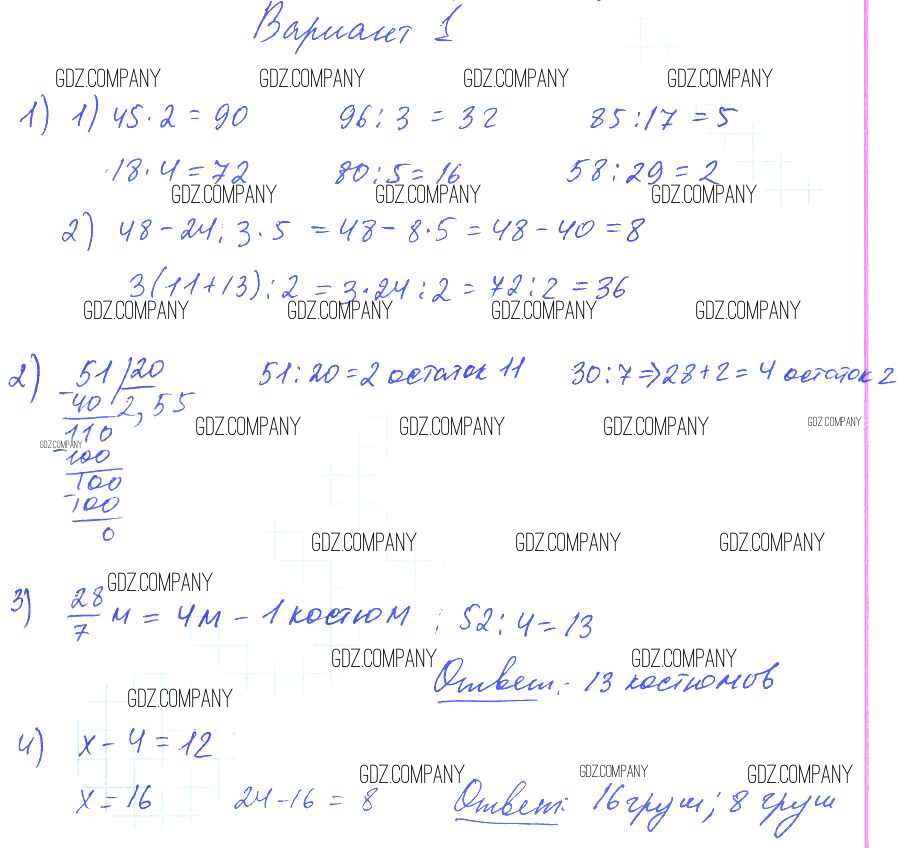 Вариант 1
GDZ.COMPANY GDZ.COMPANY GDZ.COMPANY GDZ.COMPANY
1) 1) 45·2=90 96:3=32 85:17=5
18·4=72 80:5=16 58:29=2
GDZ.COMPANY GDZ.COMPANY GDZ.COMPANY
2) 48-24:3·5=48-8·5=48-40=8
3(11+13):2=3·24:2=72:2=36
GDZ.COMPANY GDZ.COMPANY GDZ.COMPANY GDZ.COMPANY
2) 51 20 51:20=2 остаток 11 30:7⇒28+2=4 остаток 2
-40 2,55
GDZ.COMPANY GDZ.COMPANY GDZ.COMPANY GDZ.COMPANY
110
GDZ.COMPANY
-100
100
-100
0
GDZ.COMPANY GDZ.COMPANY GDZ.COMPANY
GDZ.COMPANY
3) 28/7 м = 4м - 1 костюм ; 52:4=13
GDZ.COMPANY GDZ.COMPANY
Ответ: 13 костюмов
GDZ.COMPANY
4) x-4=12
GDZ.COMPANY GDZ.COMPANY GDZ.COMPANY
x=16 24-16=8 Ответ: 16 груш; 8 груш